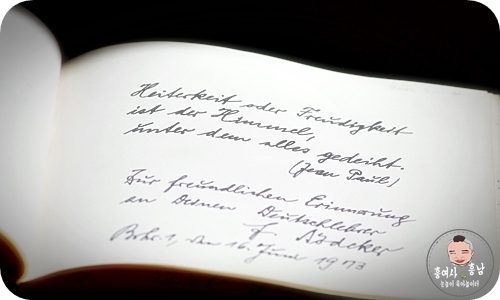 Heiterkeit oder Freudigkeit
ist der Himmel,
unter dem alles gedeiht.
(Jean Paul)
Zur freundlichen Erinnerung
an Deinen Deutschlehrer
F. Rödeker
1, den 16. Juni 1973
흥여사 흥남
눈높이 육아놀이터